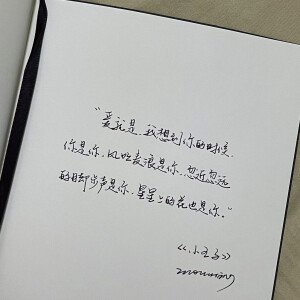 “爱就是,我想到你的时候,
你是你,风吹麦浪是你,忽近忽远
的脚步声是你,星星上的花也是你。”
《小王子》